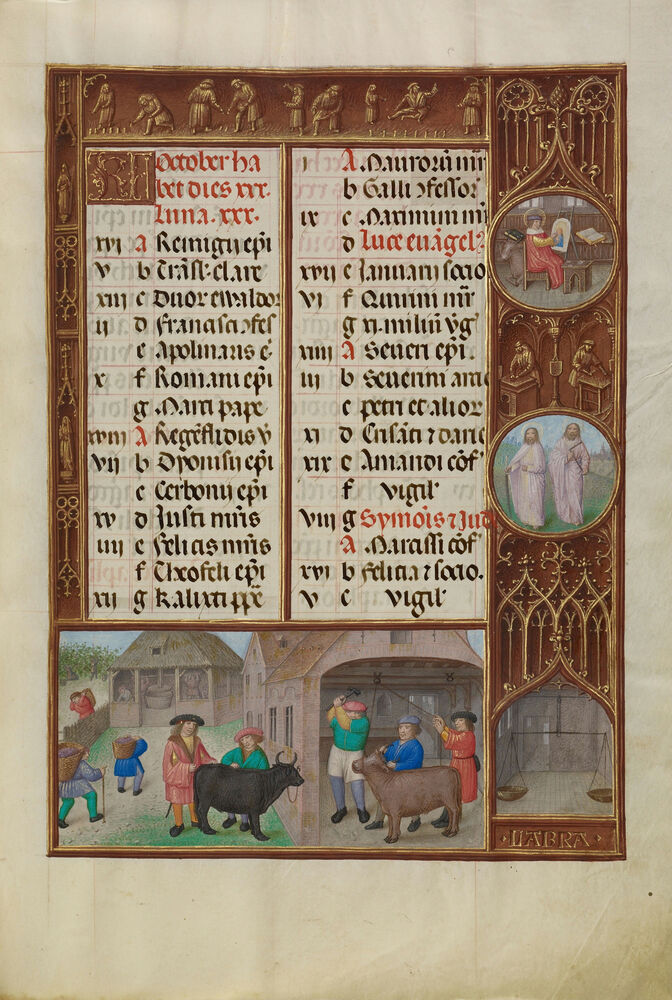 KL October ha
bet dies xxx.
Luna. xxx.
xvi A Remigii epi
v b Trãsl. clare
xiii c Duor ewaldor
ii d Francisci ɔfes
e Apolinaris e
x f Romani epi
g Marci pape
xviii A Regẽfl​idis v
vii b Dyonisii epi
c Cerbonii epi
xv d Iusti mr̃is
iiii e Felicis mr̃is
f Theofeli epi
xii g Kalixti ppe
i A Mauroru mr
b Galli ɔfessor
ix c Maximini mr
d Luce euãgel
xvii e Ianuarii socio
vi f Quintini mr
g xi. miliũ vg
xiiii A Seueri epi.
iii b Seuerini arcie
c petri et alior
xi d Crisãti ⁊ darie
xix e Amandi cõf
f vigil
viii g Symõis ⁊ Iud
A Narcissi cõf
xvi b felicia ⁊ socio.
v c vigil
LIABRA